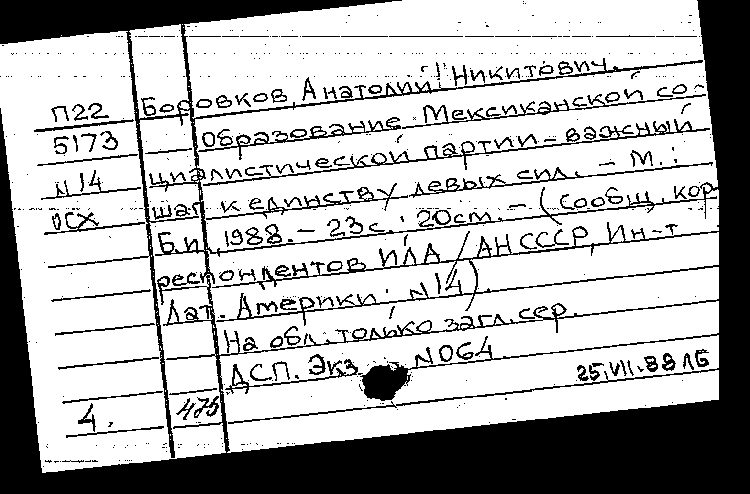 П22 Боровков, Анатолий Никитович.
5173 Образование Мексиканской со-
N14 циалистической партии - важный
ОСХ шаг к единству левых сил. - М.:
Б.и., 1988. - 23с.; 20см. - (Сообщ. кор-
респондентов ИЛА / АН СССР, Ин-т
Лат. Америки; N14).
На обл. только загл. сер.
ДСП. Экз N064.
25.VII.88 ЛБ
4. 475